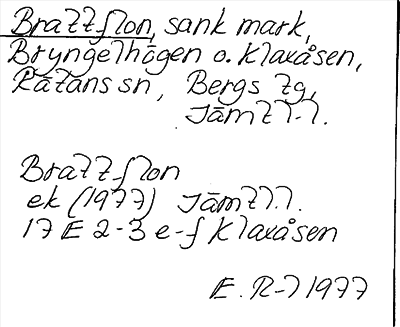 Brattflon, sank mark,
Bryngelhögen o. Klaxåsen,
Rätans sn, Bergs tg,
Jämtl-l.
Brattflon
ek (1977) Jämtl.l.
17 E 2-3 e-f Klaxåsen
E. R-l 1977